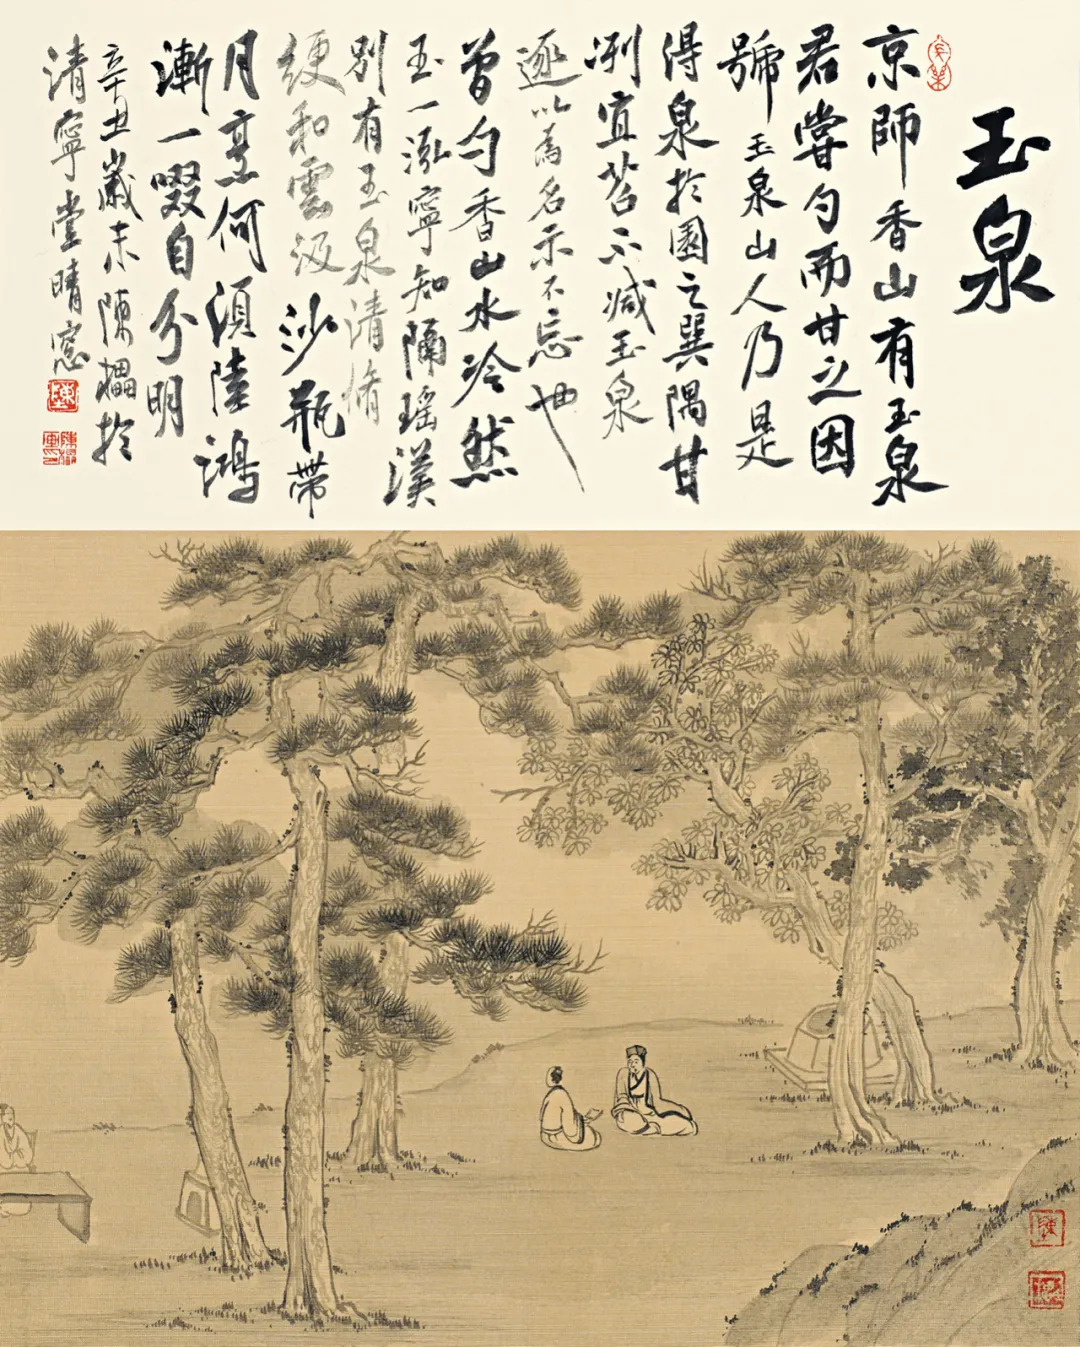 玉泉
京師香山有玉泉
君嘗勺而甘之因
號玉泉山人乃是
得泉於園之巽隅甘
冽宜茗不減玉泉
遂以為名示不忘也
曾勺香山水泠然
玉一泓寧知隔瑤漢
別有玉泉清脩
綆和雲汲沙瓶帶
月烹何須陸鴻
漸一啜自分明
辛丑歲末陳櫑於
清寧堂晴窓